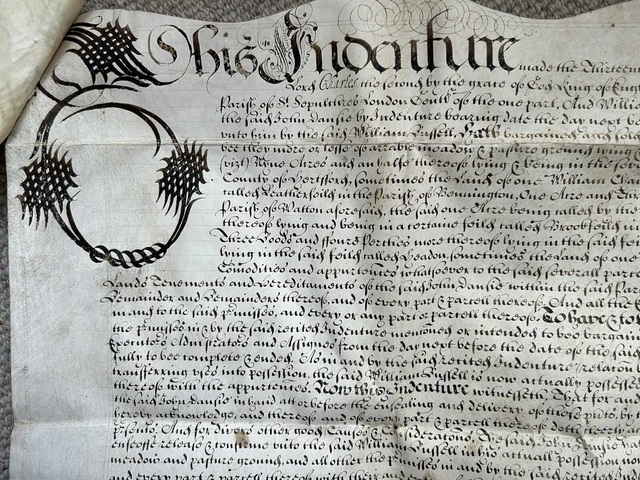 This Indenture made the Thirteen
Lord Charles the second by the grace of God King of Eng
Parish of St Sepulchres London of the one part, And Willi
the said John Dansie by Indenture bearing date the day next be
unto him by the said William Russell, Hath bargained and sol
bee they more or lesse of arrable meadow & pasture ground lying
(vizt) Nyne Acres and an halfe thereof lying & being in the
County of Hertford, sometimes the Land of one William
called in the Parish of Bennington, One Acre and
Parish of Watton aforesaid, the said one Acre being called by the
thereof lying and being in a certaine feild called Brookfeild
Three Roods and ffoure Perches more thereof lying in the said
lying in the said feild called sometimes the Land of one
Comodities and appurtences whatsoever to the said severall par
Lands Tenements and Hereditaments of the said John Dansie within the said Par
Remainder and Remainders thereof, and of every part & parcell thereof. And all the
in and to the said pmisses, and every or any part or parcell thereof. To have & to
the pmisses in & by the said recited Indenture menconed or intended to bee barga
Executors Administrators and Assignes from the day next before the date of the said
fully to bee complete & ended. As in and by the said recited Indenture relacon
transferring uses into possession, the said William Russell is now actually possesse
thereof with the appurtences. Now this Indenture witnesseth, That for and
the said John Dansie in hand att or before the ensealing and delivery of these pnts, by
hereby acknowledge, and thereof and of every part & parcell thereof doth
psents, And for divers other good Causes & Consideracons, The said John
enfeoffe release & confirme unto the said William Russell in his actuall possession now
meadow and pasture ground, and all other the pmisses in and by the said recited Ind
and every part & parcell thereof with their and